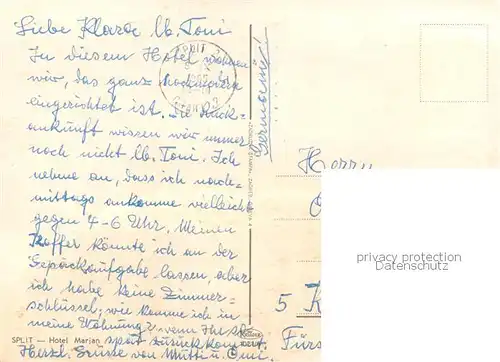 Liebe Klara lb. Toni
In diesem Hotel wohnen
wir, das ganz hochmodern
eingerichtet ist. Die Rück-
ankunft wissen wir immer
noch nicht lb. Toni. Ich
nehme an, dass ich nach-
mittags ankomme vielleicht
gegen 4-6 Uhr. Meinen
Koffer könnte ich an der
Gepäckaufgabe lassen, aber
ich habe keine Zimmer-
schlüssel, wie komme ich in
meine Wohnung? wenn Ihr
spät zurück kommt.
Herzl. Grüsse von Mutti u. Omi.
SPLIT — Hotel Marjan
SPLIT
Germania!
Herrn
5 K
privacy protection
Datenschutz